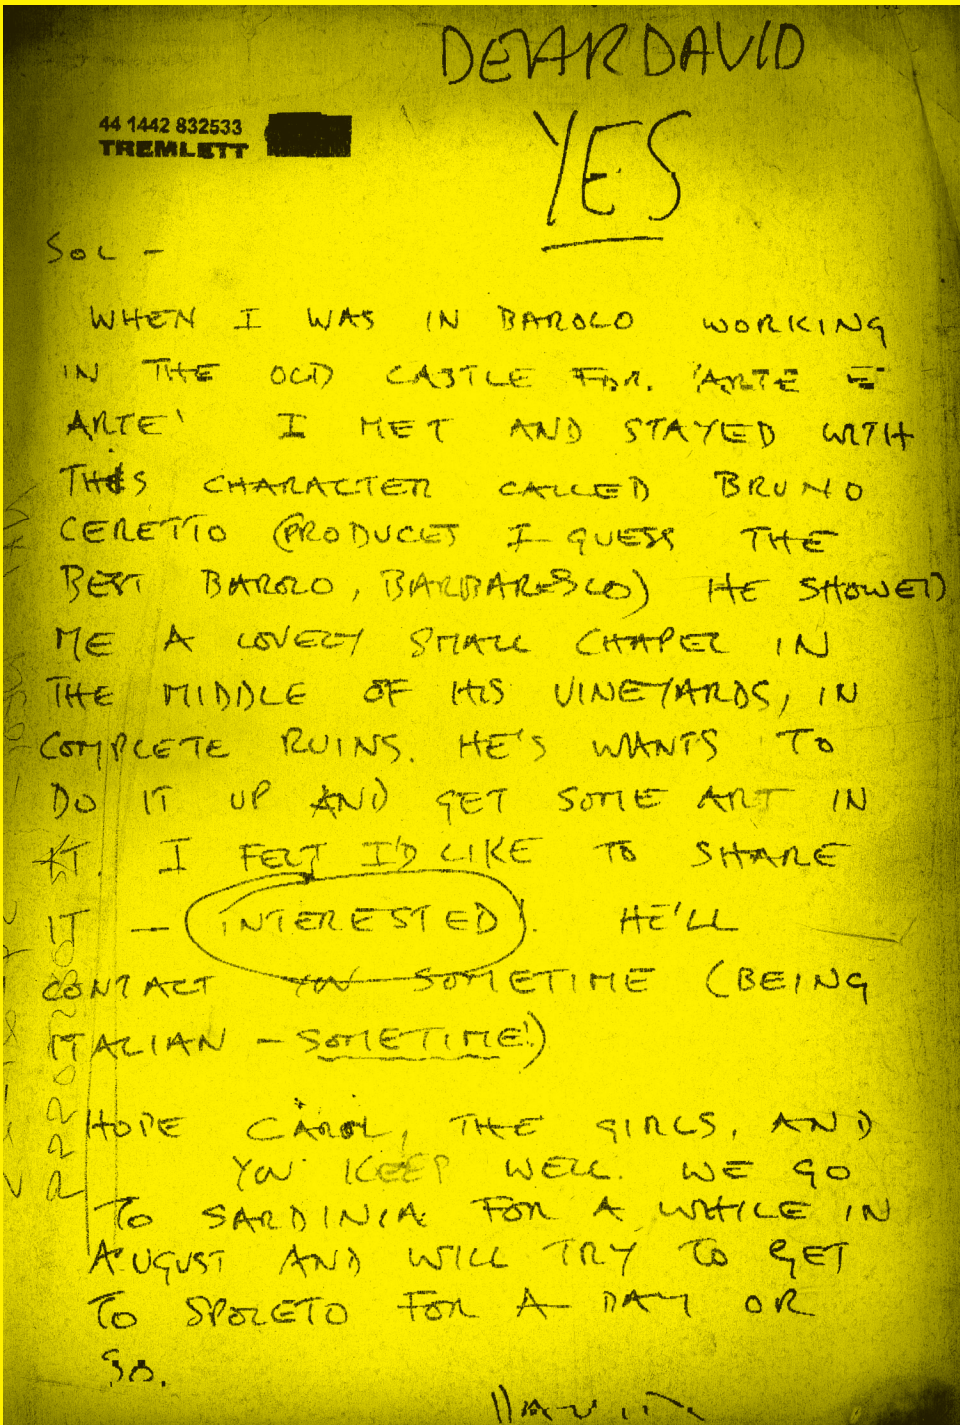 DEAR DAVID
YES
44 1442 832533
TREMLETT
SOL -
WHEN I WAS IN BAROLO WORKING
IN THE OLD CASTLE FOR 'ARTE E
ARTE' I MET AND STAYED WITH
THIS CHARACTER CALLED BRUNO
CERETTO (PRODUCES I GUESS THE
BEST BAROLO, BARBARESCO) HE SHOWED
ME A LOVELY SMALL CHAPEL IN
THE MIDDLE OF HIS VINEYARDS, IN
COMPLETE RUINS. HE'S WANTS TO
DO IT UP AND GET SOME ART IN
IT. I FELT I'D LIKE TO SHARE
IT — INTERESTED!. HE'LL
CONTACT YOU SOMETIME (BEING
ITALIAN - SOMETIME!)
HOPE CAROL, THE GIRLS, AND
YOU KEEP WELL. WE GO
TO SARDINIA FOR A WHILE IN
AUGUST AND WILL TRY TO GET
TO SPOLETO FOR A DAY OR
SO.
DAVID